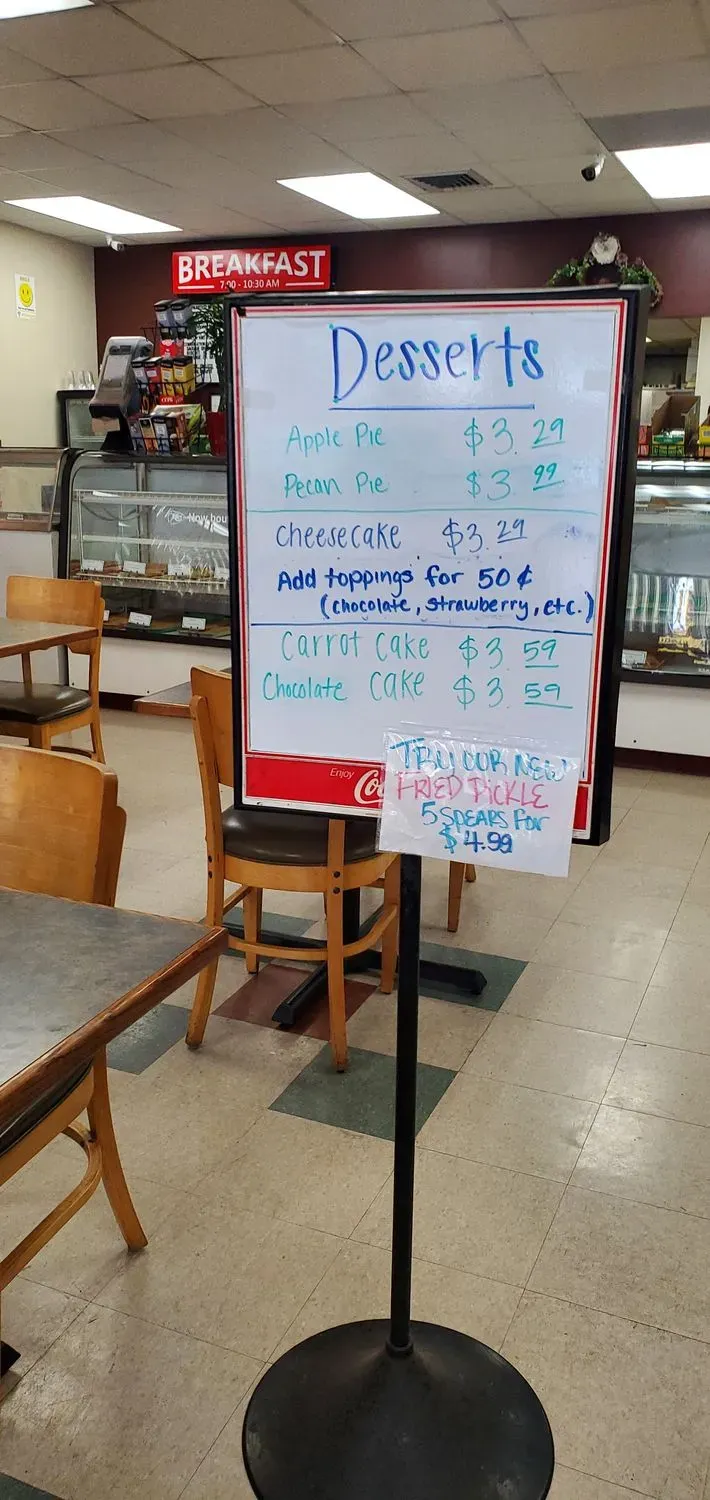 BREAKFAST
7:00 - 10:30 AM
Desserts
Apple Pie $3.29
Pecan Pie $3.99
Cheesecake $3.29
Add toppings for 50¢
(chocolate, strawberry, etc.)
Carrot Cake $3.59
Chocolate Cake $3.59
Enjoy
TRY OUR NEW
FRIED PICKLE
5 SPEARS FOR
$4.99